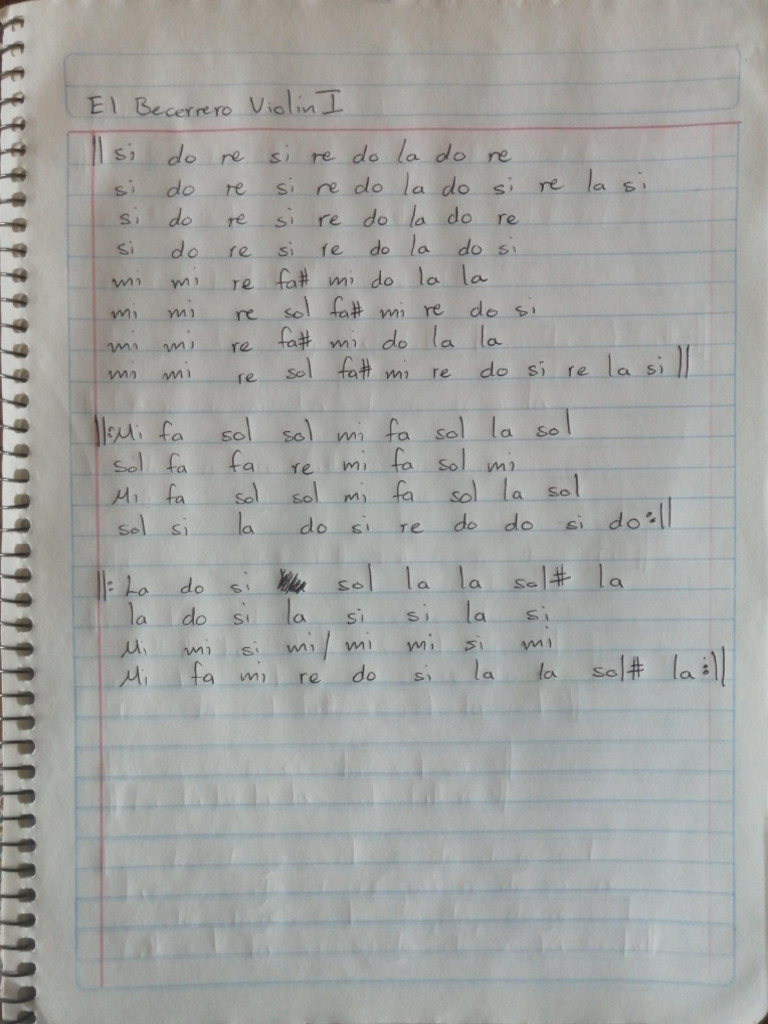 El Becerrero Violin I
|| si do re si re do la do re
si do re si re do la do si re la si
si do re si re do la do re
si do re si re do la do si
mi mi re fa# mi do la la
mi mi re sol fa# mi re do si
mi mi re fa# mi do la la
mi mi re sol fa# mi re do si re la si ||
||: Mi fa sol sol mi fa sol la sol
sol fa fa re mi fa sol mi
Mi fa sol sol mi fa sol la sol
sol si la do si re do do si do :||
||: La do si sol la la sol# la
la do si la si si la si
Mi mi si mi / mi mi si mi
Mi fa mi re do si la la sol# la :||